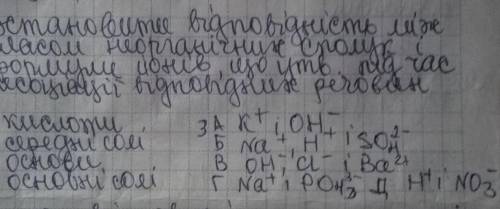 встановити відповідність між
класом неорганічних сполук і
формули йонів, що утв. під час
дисоціації відповідних речовин
кислоти 3 А K⁺ і OH⁻
середні солі Б Na⁺, H⁺ і SO₄²⁻
основи В OH⁻, Cl⁻ і Ba²⁺
основні солі Г Na⁺ і PO₄³⁻ Д H⁺ і NO₃⁻